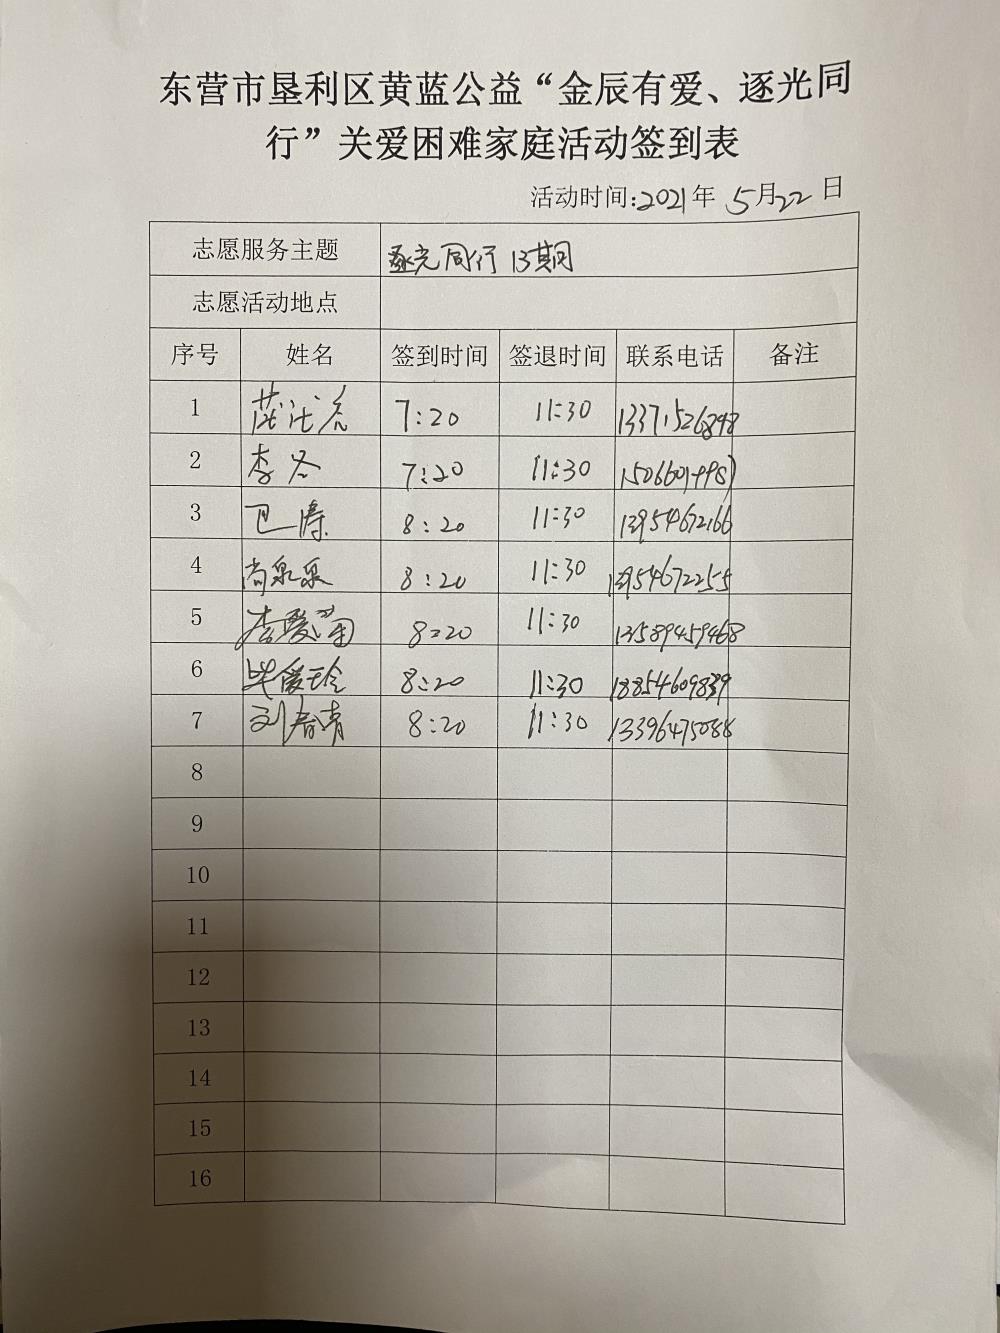 东营市垦利区黄蓝公益“金辰有爱、逐光同
行”关爱困难家庭活动签到表
活动时间:2021年 5月22 日
志愿服务主题 逐光同行 13期
志愿活动地点
序号 姓名 签到时间 签退时间 联系电话 备注
1 7:20 11:30 13371526848
2 李冬 7:20 11:30
3 卫涛 8:20 11:30 13954672166
4 尚泉泉 8:20 11:30 13954672255
5 李爱菊 8:20 11:30 13589459468
6 毕爱玲 8:20 11:30 18854609839
7 刘春青 8:20 11:30 13396475088
8
9
10
11
12
13
14
15
16